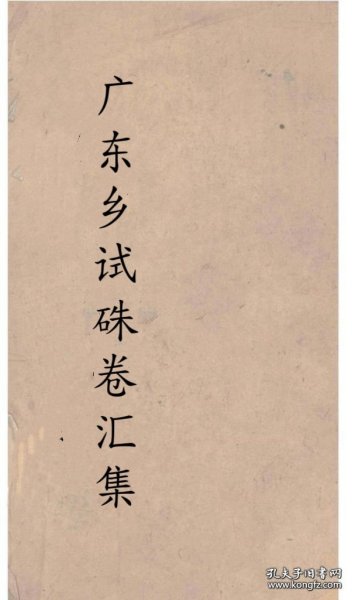 广东乡试硃卷汇集
孔夫子旧书网
www.kongfz.com